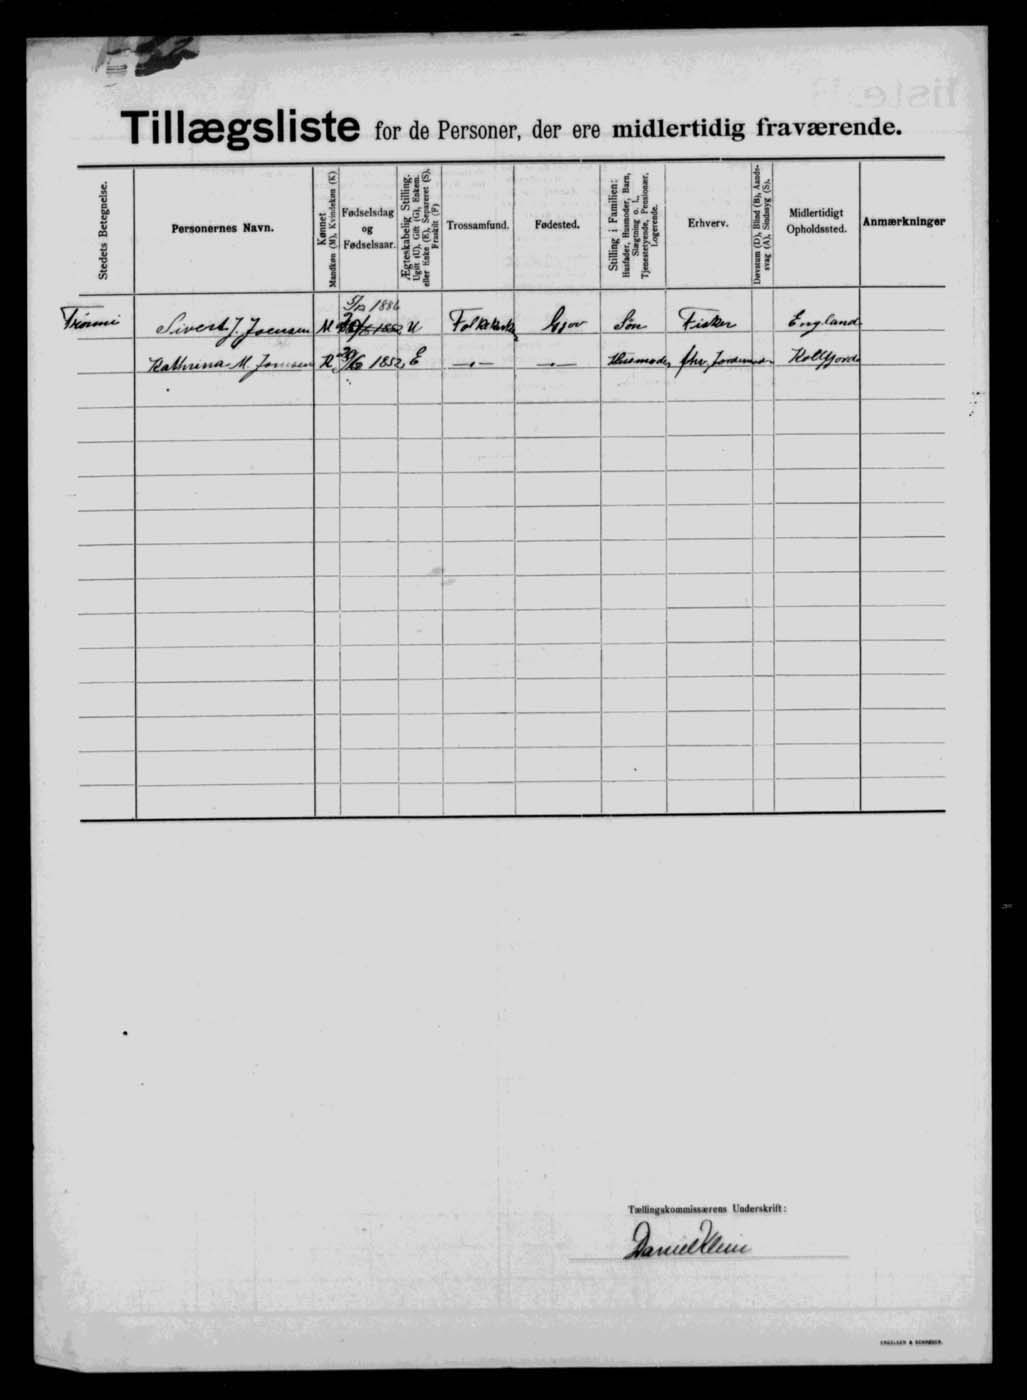 Tillægsliste for de Personer, der ere midlertidig fraværende.
Stedets Betegnelse.
Personernes Navn.
Kønnet
Mandkøn (M), Kvindekøn (K)
Fødselsdag
og
Fødselsaar.
Ægteskabelig Stilling.
Ugift (U), Gift (G), Enkem.
eller Enke (E), Separeret (S),
Fraskilt (F)
Trossamfund.
Fødested.
Stilling i Familien:
Husfader, Husmoder, Barn,
Slægtning o. l.,
Tjenestetyende, Pensionær,
Logerende.
Erhverv.
Døvstum (D), Blind (B), Aands-
svag (A), Sindssyg (S).
Midlertidigt
Opholdssted.
Anmærkninger
1886
Sivert J. Joensen M U Folkekirke Gjov Søn Fisker England
Kathrina M. Joensen K 1852 E Husmoder fhv. Jordemoder Kollfjord
Tællingskommissærens Underskrift:
Daniel Klein
ENGELSEN & SCHRØDER.